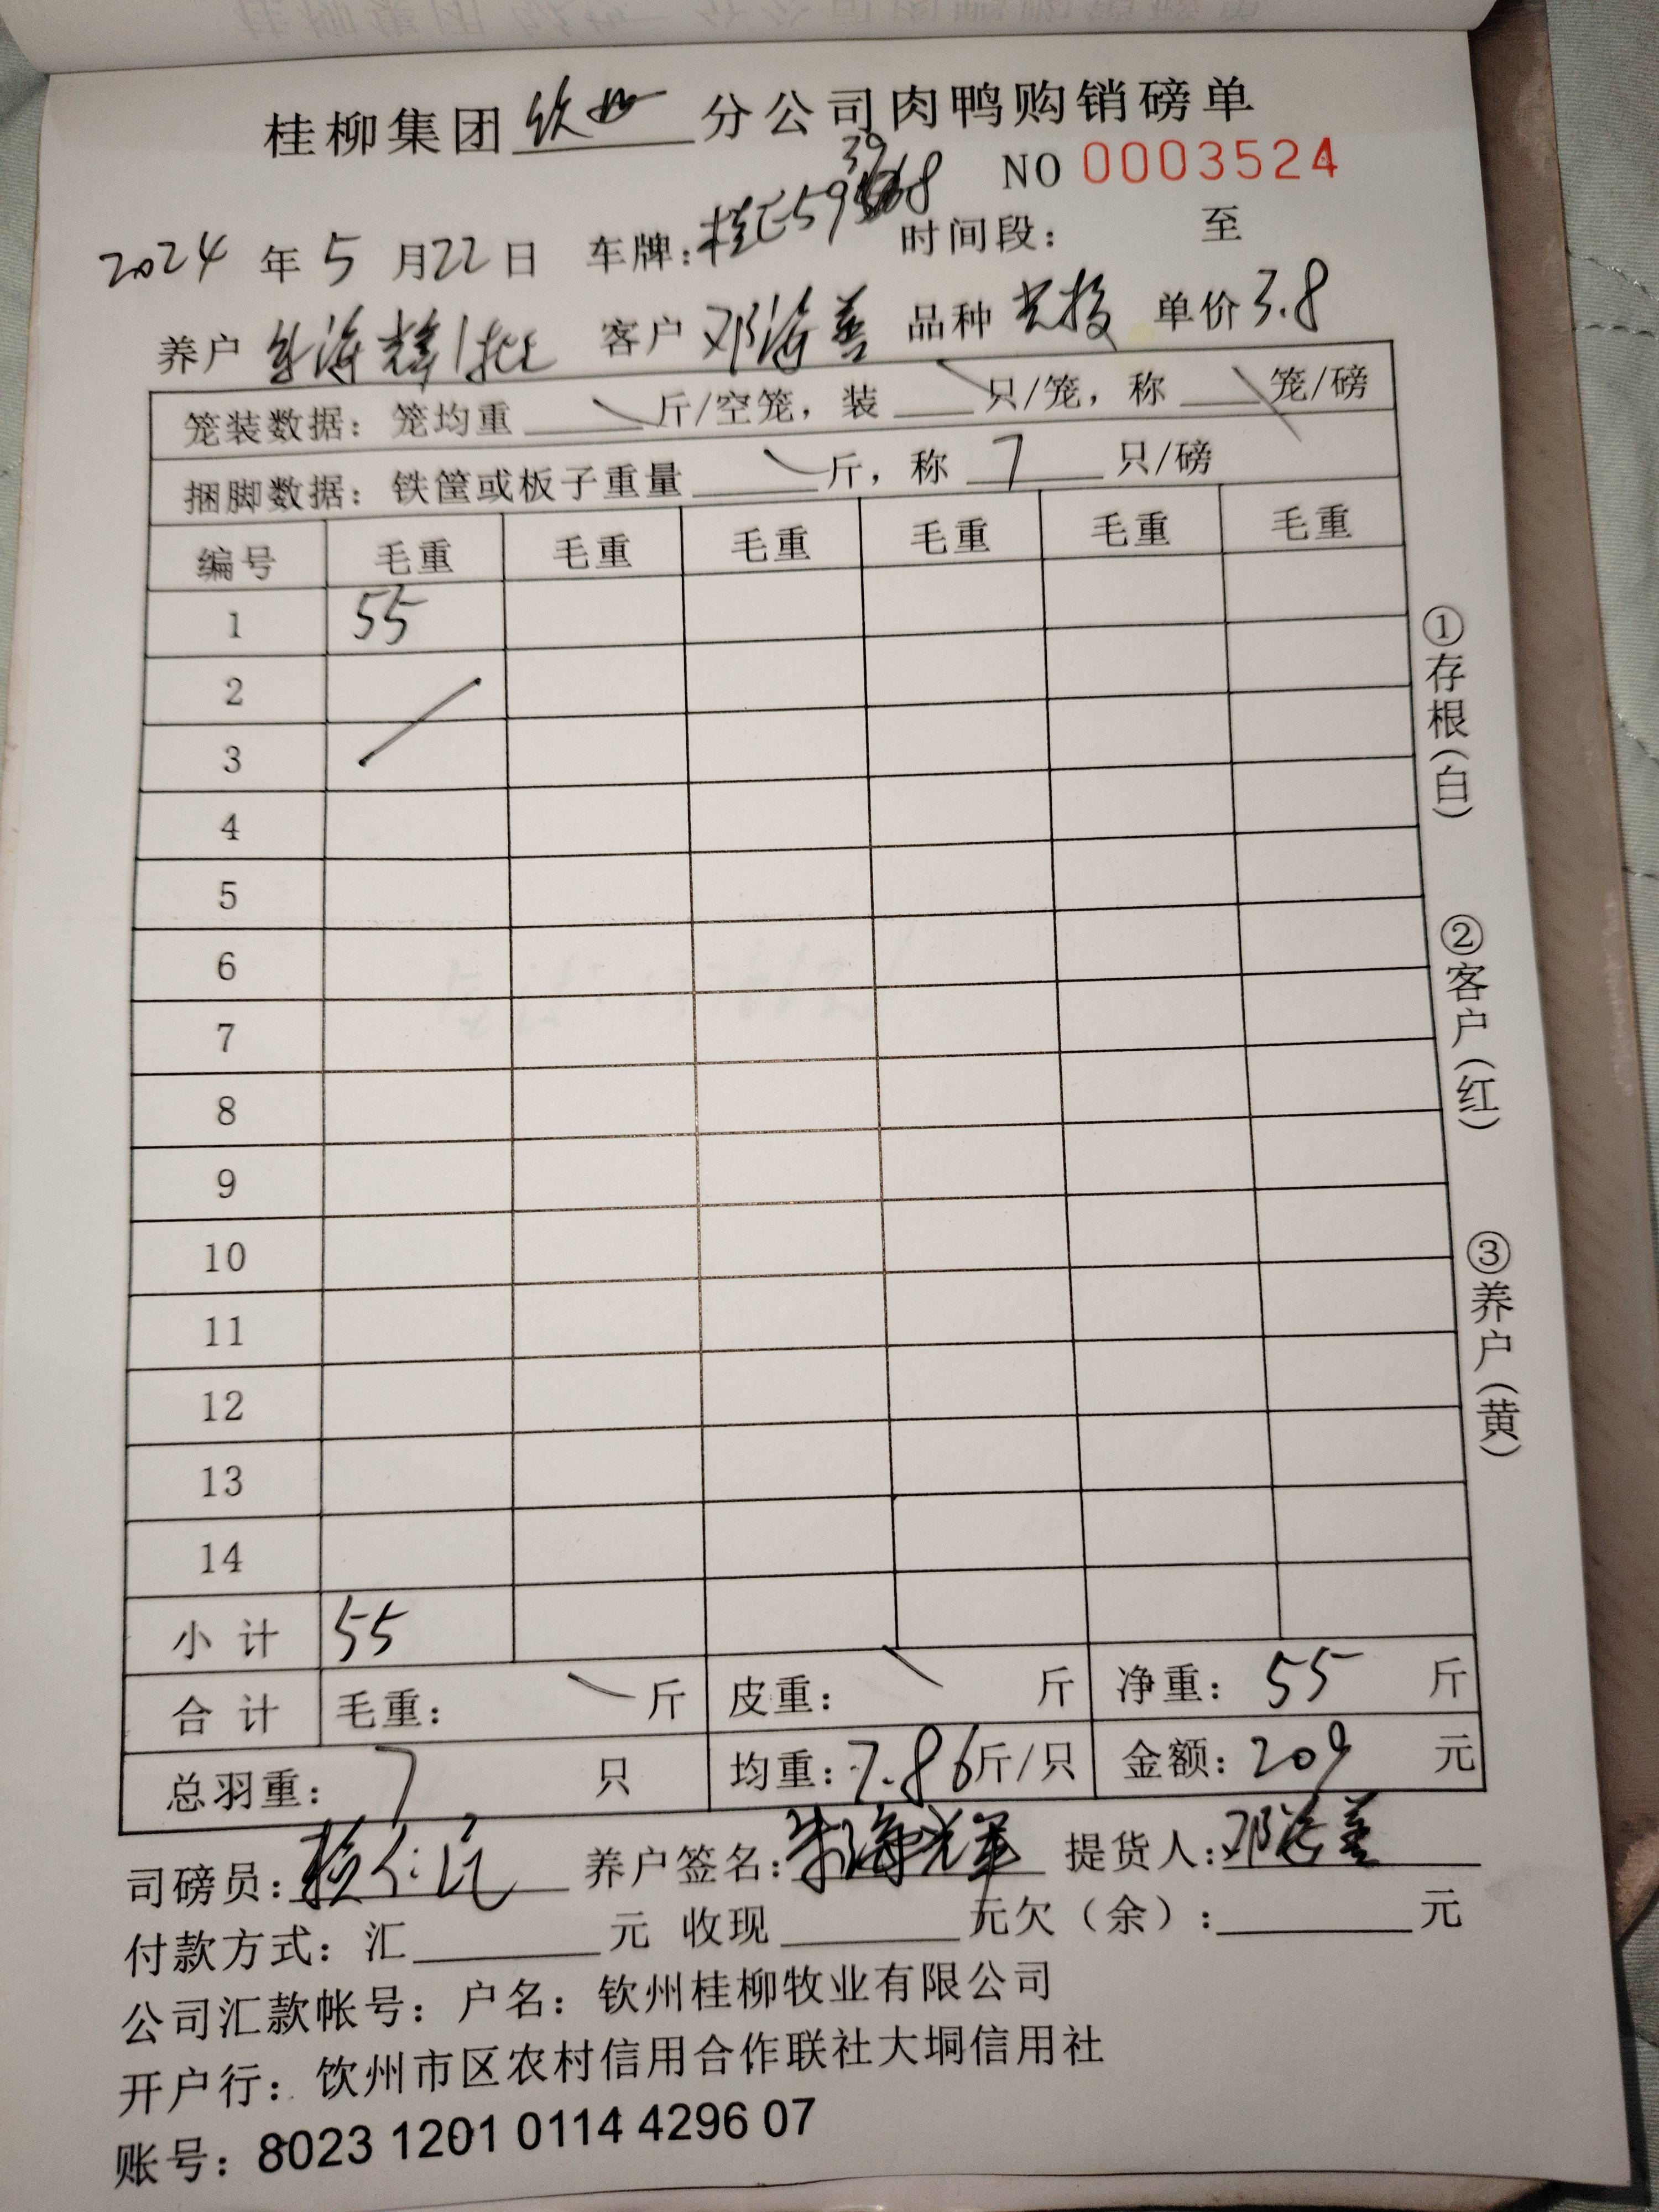 桂柳集团 钦州 分公司肉鸭购销磅单
NO 0003524
2024 年 5 月 22 日 车牌: 时间段: 至
养户 海辉1批 客户 邓海善 品种 单价 3.8
笼装数据: 笼均重 斤/空笼, 装 只/笼, 称 笼/磅
捆脚数据: 铁筐或板子重量 斤, 称 7 只/磅
编号 毛重 毛重 毛重 毛重 毛重 毛重
1 55
2
3
4
5
6
7
8
9
10
11
12
13
14
小计 55
合计 毛重: 斤 皮重: 斤 净重: 55 斤
总羽重: 7 只 均重: 7.86 斤/只 金额: 209 元
司磅员: 养户签名: 海辉 提货人: 邓海善
付款方式: 汇 元 收现 元 欠(余): 元
公司汇款帐号: 户名: 钦州桂柳牧业有限公司
开户行: 钦州市区农村信用合作联社大垌信用社
账号: 8023 1201 0114 4296 07
①存根(白)
②客户(红)
③养户(黄)